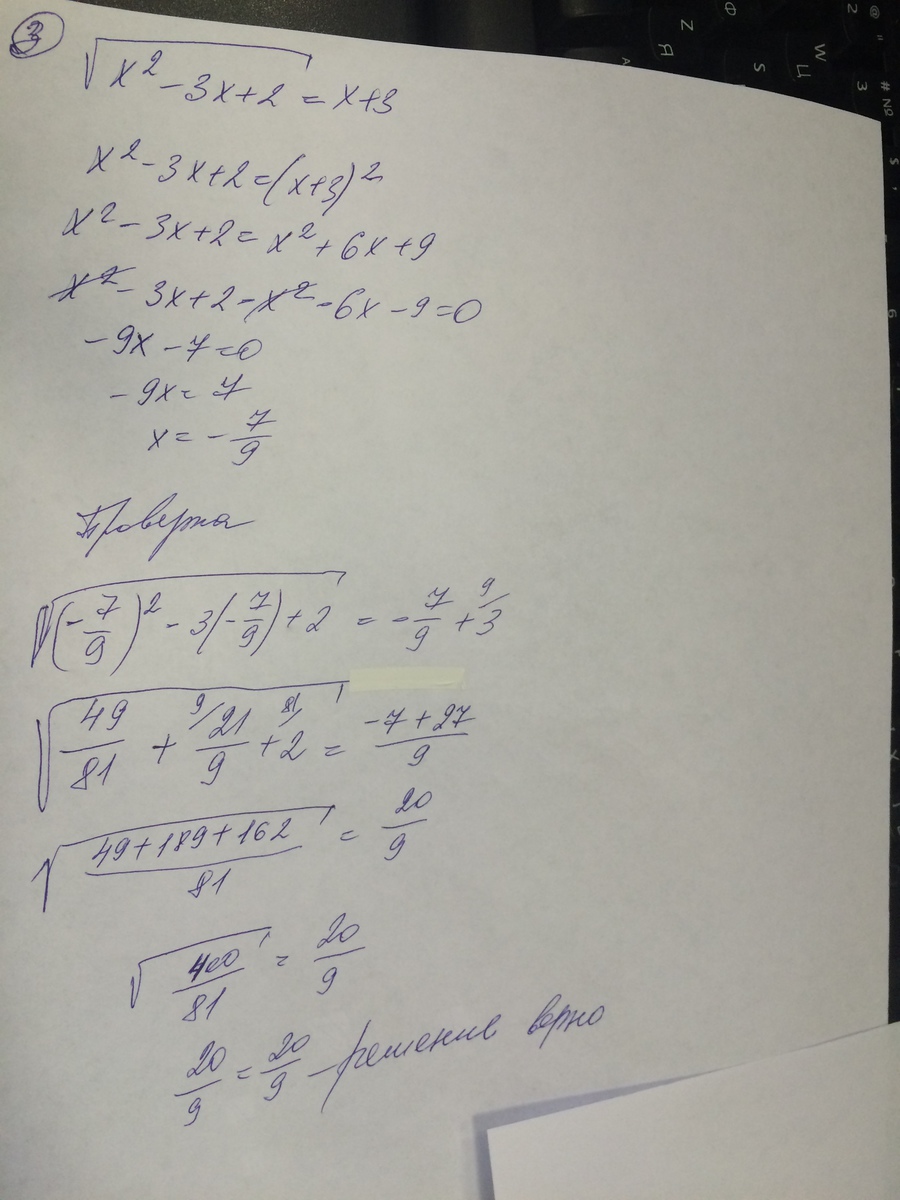 3
√(x² - 3x + 2) = x + 3
x² - 3x + 2 = (x + 3)²
x² - 3x + 2 = x² + 6x + 9
x² - 3x + 2 - x² - 6x - 9 = 0
-9x - 7 = 0
-9x = 7
x = -7/9
Проверка
√((-7/9)² - 3(-7/9) + 2) = -7/9 + 9/3
√(49/81 + 9/21/9 + 81/2) = (-7 + 27)/9
√((49 + 189 + 162)/81) = 20/9
√(400/81) = 20/9
20/9 = 20/9 - решение верно